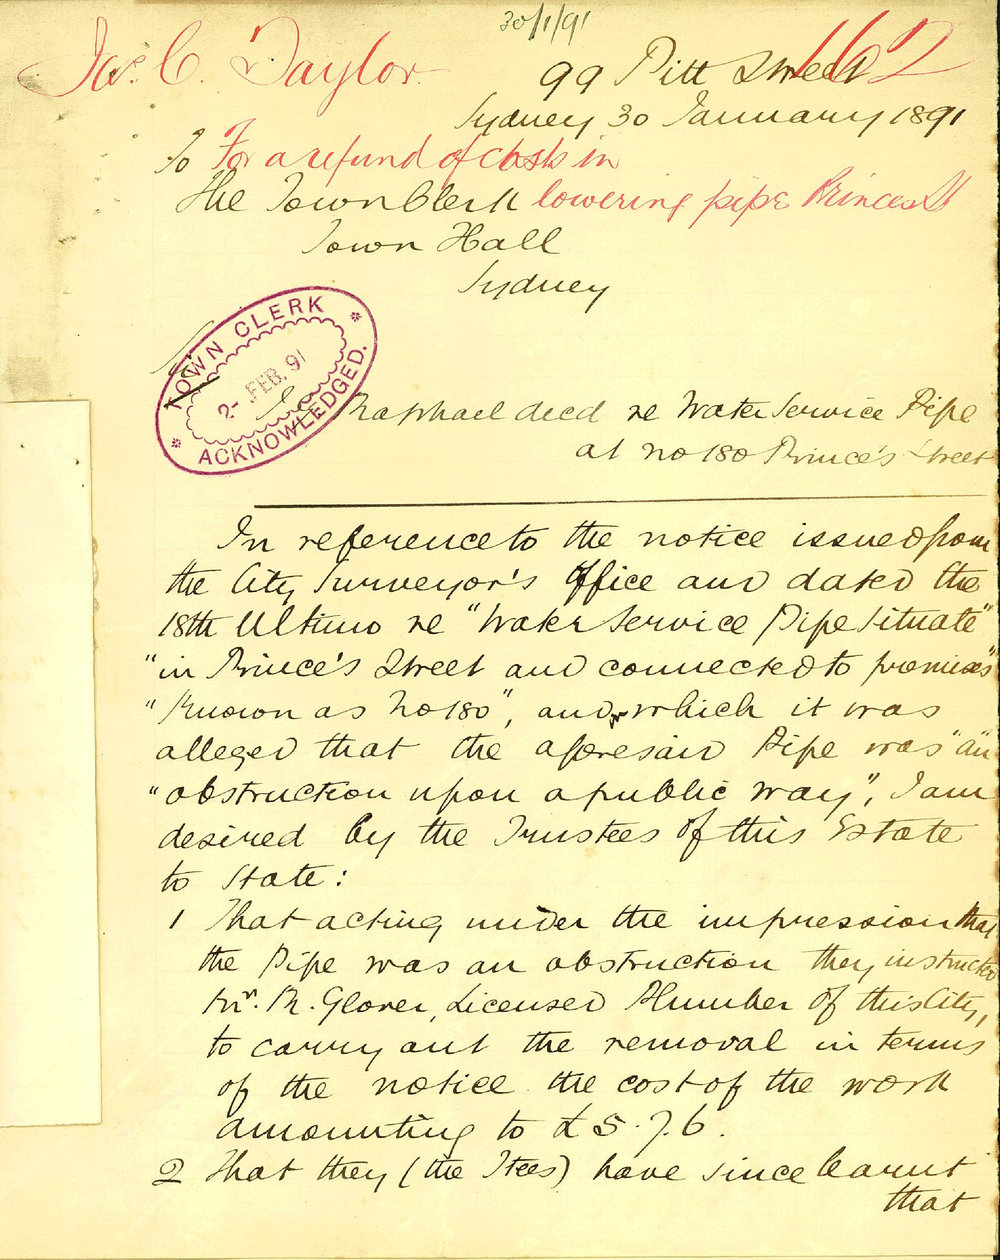 30/1/91
Jas. C. Taylor
162
99 Pitt Street
Sydney 30 January 1891
To
For a refund of costs in
The Town Clerk
lowering pipe Princes St
Town Hall
Sydney
TOWN CLERK
2- FEB. 91
ACKNOWLEDGED.
Raphael decd re Water Service Pipe
at no 180 Prince's Street
In reference to the notice issued from
the City Surveyor's Office and dated the
18th Ultimo re "Water Service Pipe situate"
"in Prince's Street and connected to premises"
"Known as No 180", and in which it was
alleged that the aforesaid Pipe was "an"
"obstruction upon a public way", I am
desired by the Trustees of this Estate
to State:
1 That acting under the impression that
the Pipe was an obstruction they instructed
Mr. R. Glover, Licensed Plumber of this City,
to carry out the removal in terms
of the notice the cost of the work
amounting to £5.7.6.
2 That they (the Tees) have since learnt
that